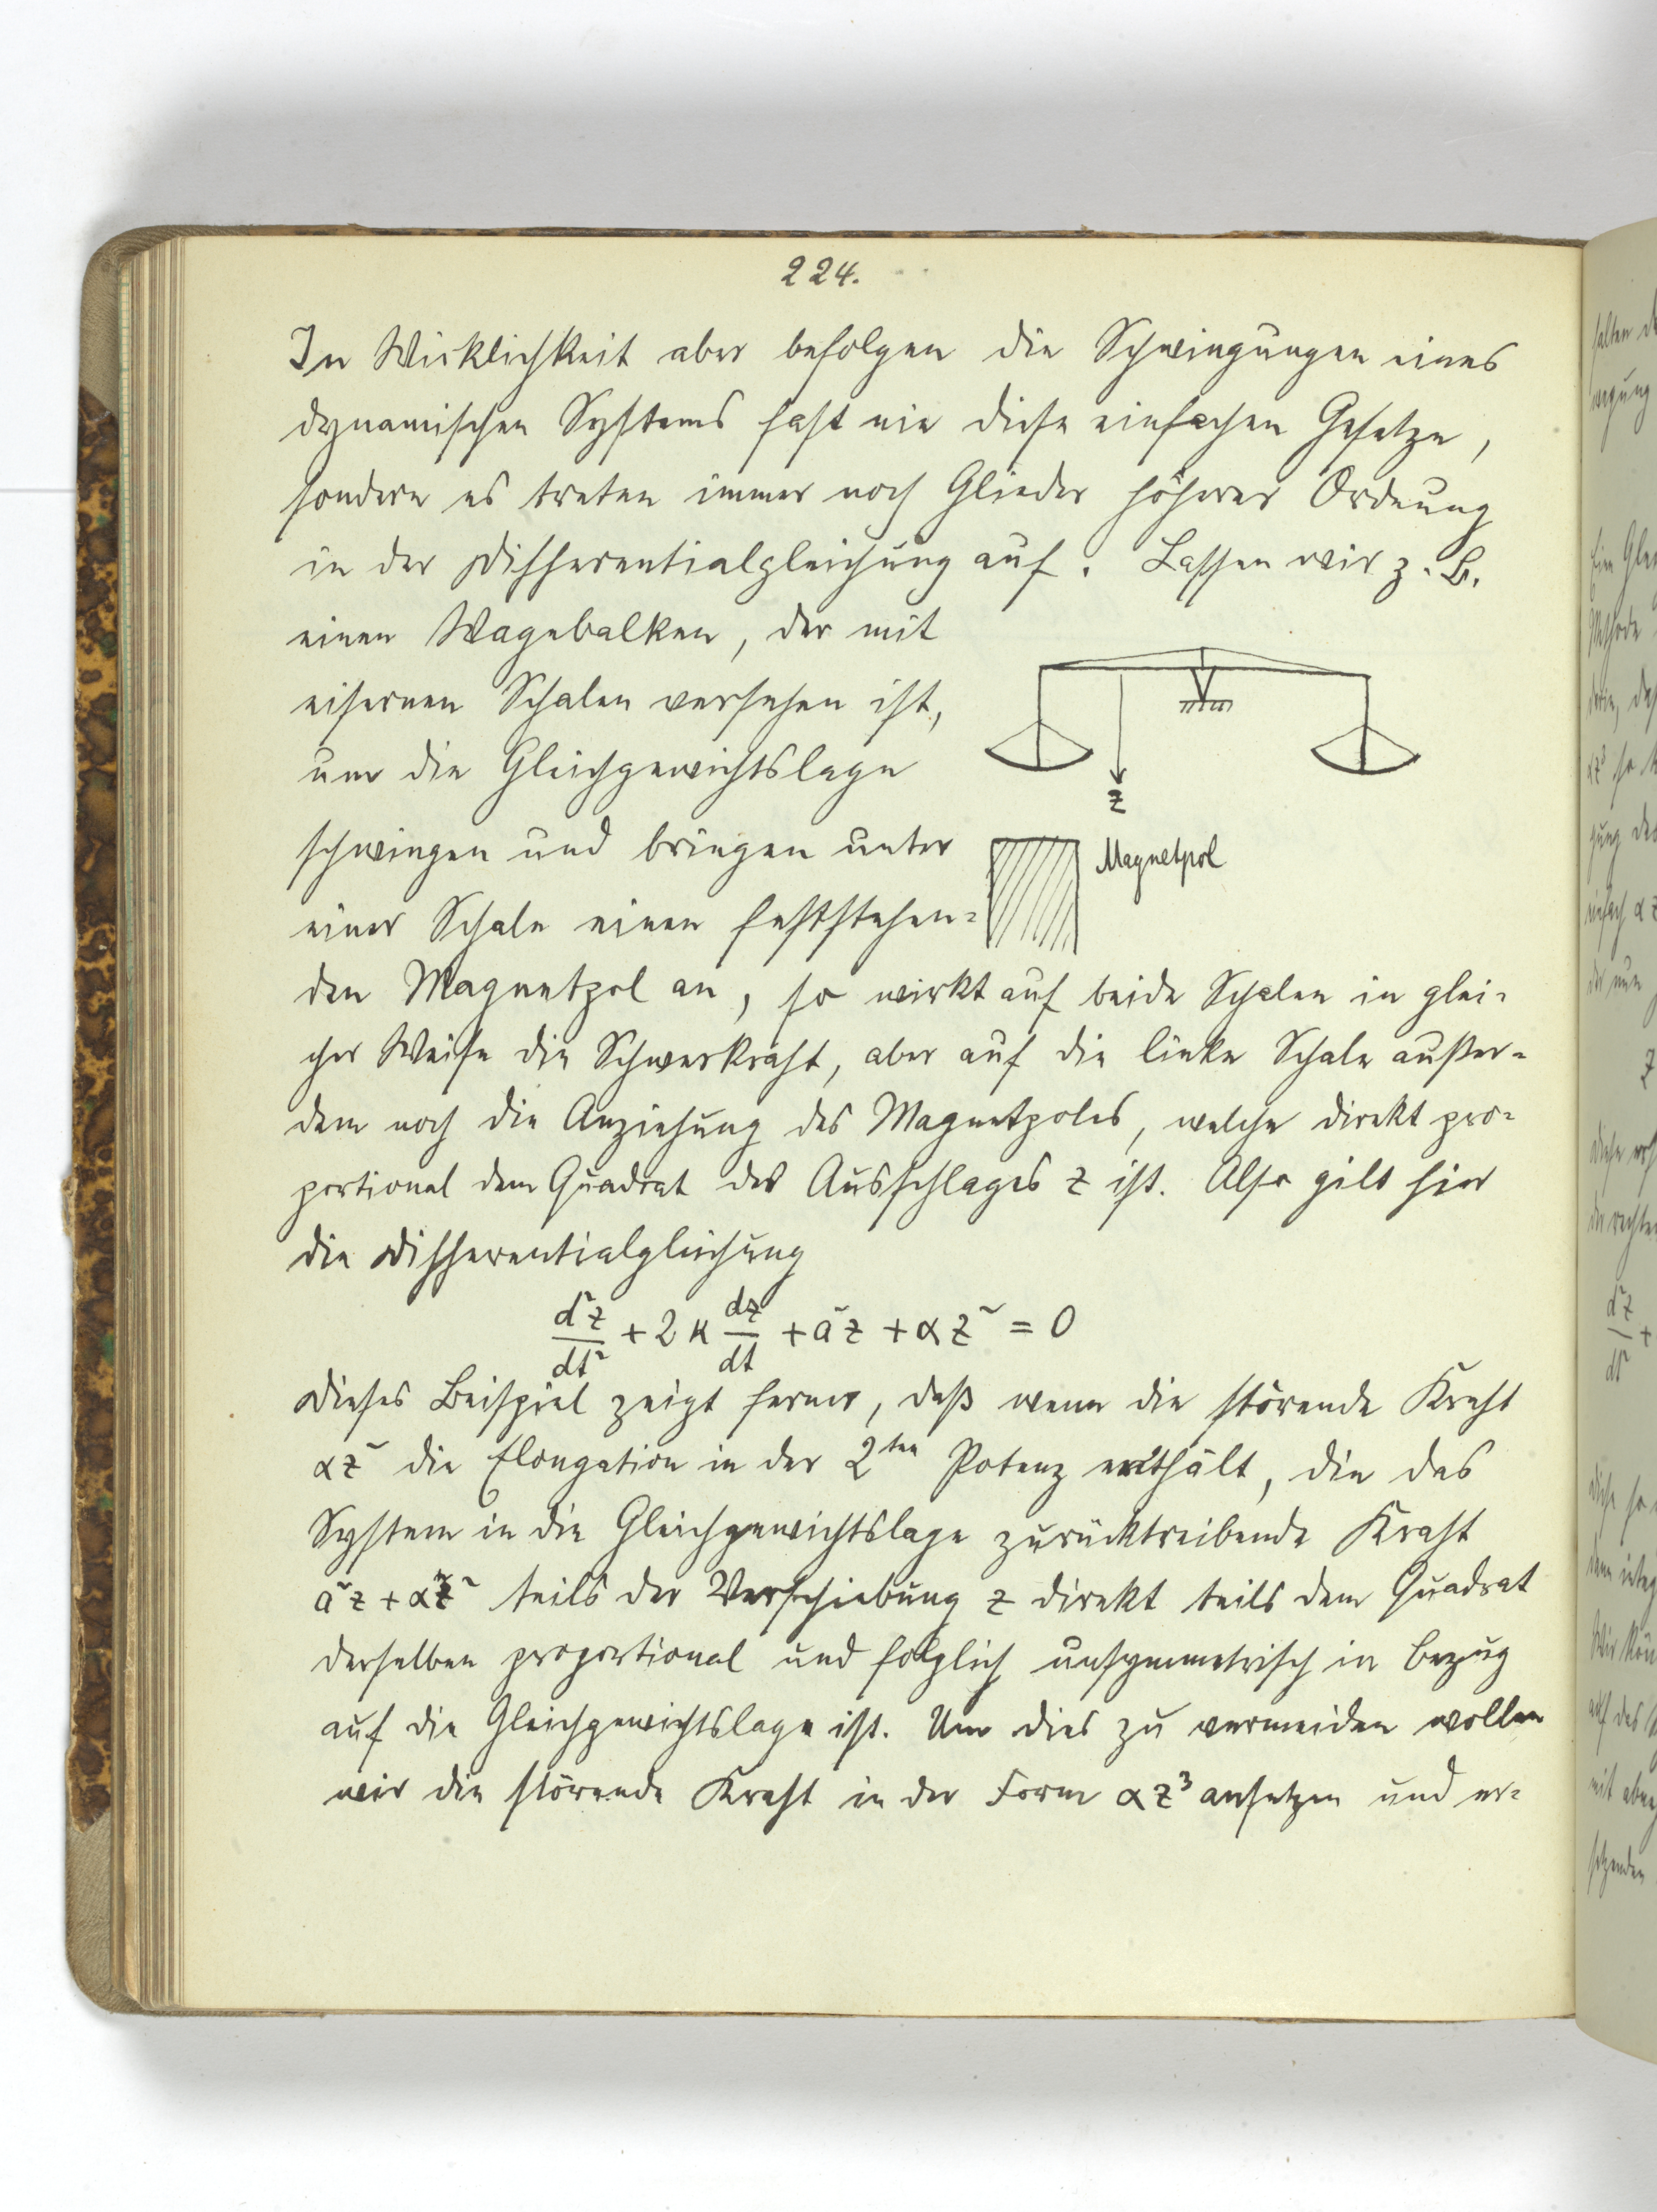 224.
In Wirklichkeit aber befolgen die Schwingungen eines
dynamischen Systems fast nie diese einfachen Gesetze,
sondern es treten immer noch Glieder höherer Ordnung
in der Differentialgleichung auf. Lassen wir z. B.
einen Wagebalken, der mit
eisernen Schalen versehen ist,
um die Gleichgewichtslage
z
schwingen und bringen unter
Magnetpol
einer Schale einen feststehen=
den Magnetpol an, so wirkt auf beide Schalen in glei=
cher Weise die Schwerkraft, aber auf die linke Schale außer=
dem noch die Anziehung des Magnetpoles, welche direkt pro=
portional dem Quadrat des Ausschlages z ist. Also gilt hier
die Differentialgleichung
d²z/dt² + 2κ dz/dt + a²z + αz² = 0
Dieses Beispiel zeigt ferner, daß wenn die störende Kraft
αz² die Elongation in der 2ten Potenz enthält, die das
System in die Gleichgewichtslage zurücktreibende Kraft
a²z + αz² teils der Verschiebung z direkt teils dem Quadrat
derselben proportional und folglich unsymmetrisch in Bezug
auf die Gleichgewichtslage ist. Um dies zu vermeiden wollen
wir die störende Kraft in der Form αz³ ansetzen und er=